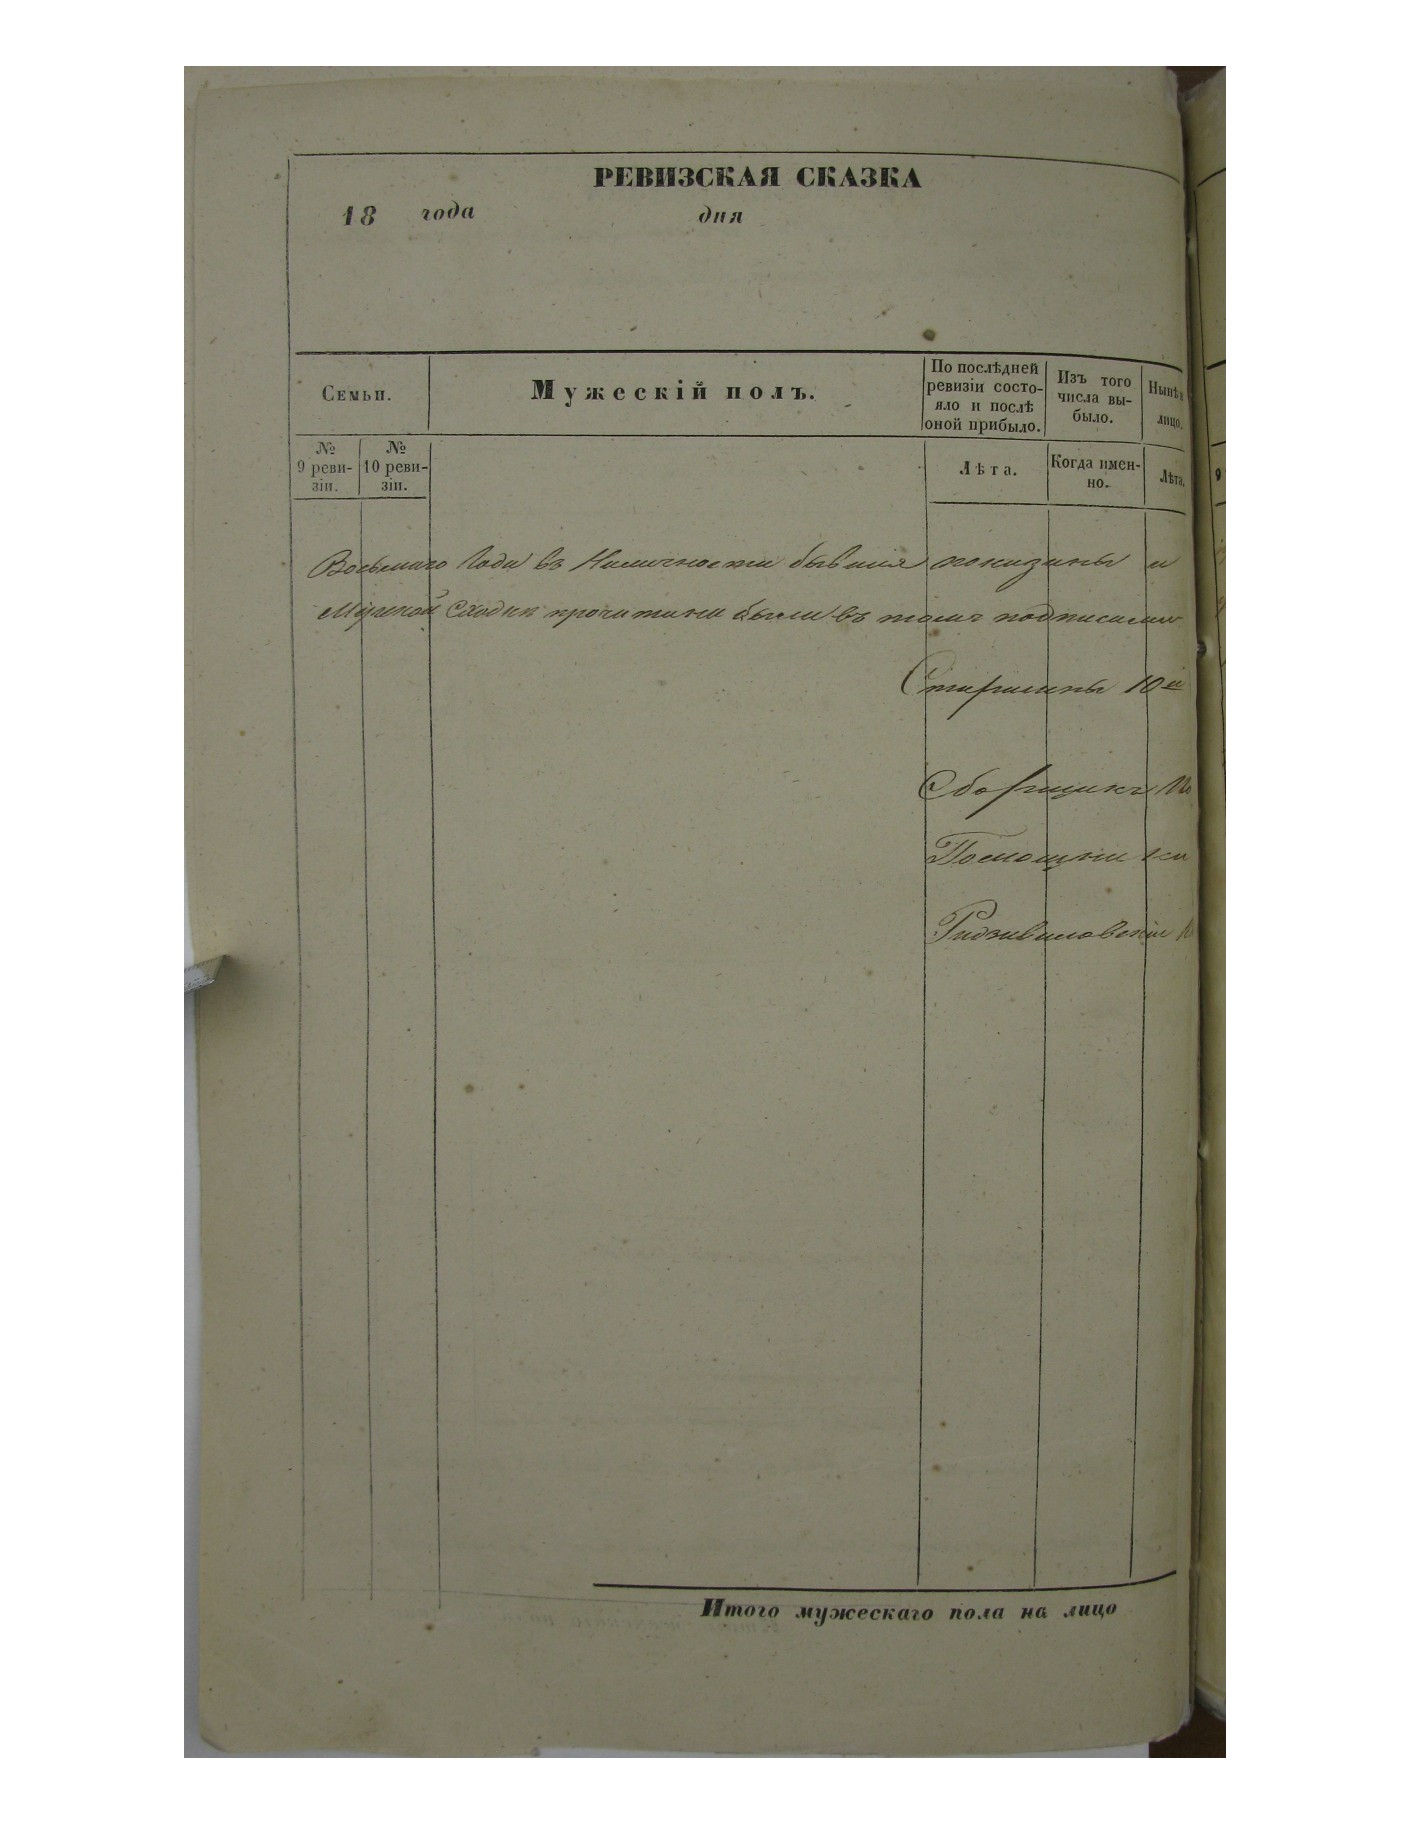 РЕВИЗСКАЯ СКАЗКА
18 года дня
Семьи.
Мужескій полъ.
По послѣдней ревизіи состо-
яло и послѣ
оной прибыло.
Изъ того
числа вы-
было.
Нынѣ н
лицо.
№
9 реви-
зіи.
№
10 реви-
зіи.
Лѣта.
Когда имен-
но.
Лѣта.
Восьмаго Года въ Наличности бывшія показаны и
Мірской Сходки прочитаны были въ томъ подписали
Старшины 10й
Сборщикъ
Помощни
Радзивиловскіи
Итого мужескаго пола на лицо